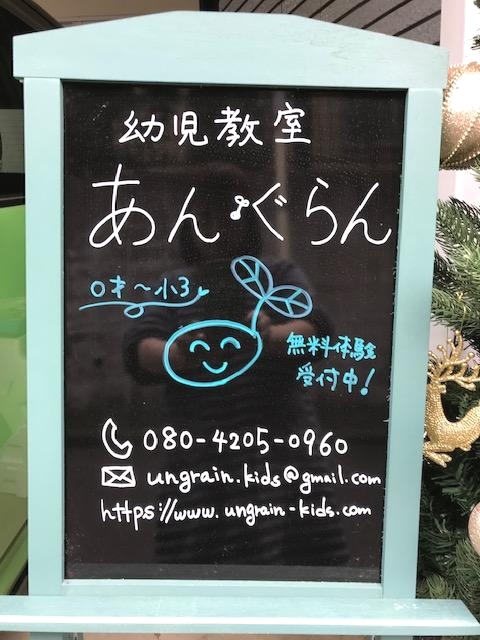 幼児教室
あん・ぐらん
0才～小3
無料体験
受付中！
080-4205-0960
ungrain.kids@gmail.com
https://www.ungrain-kids.com